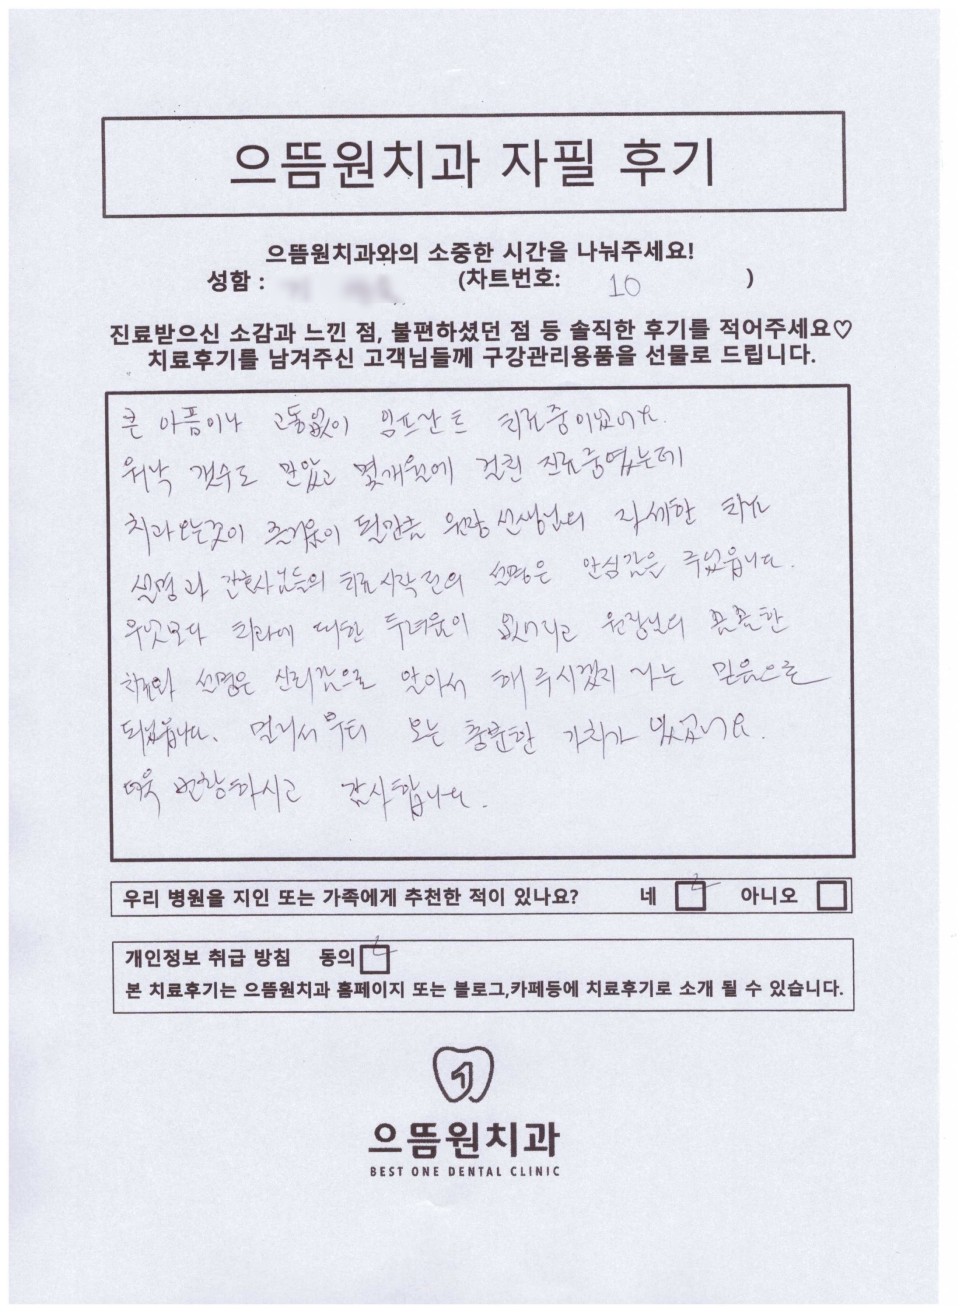 으뜸원치과 자필 후기
으뜸원치과와의 소중한 시간을 나눠주세요!
성함 : (차트번호: 10 )
진료받으신 소감과 느낀 점, 불편하셨던 점 등 솔직한 후기를 적어주세요♡
치료후기를 남겨주신 고객님들께 구강관리용품을 선물로 드립니다.
큰 아픔이나 고통없이 임프란트 치료중이었네요.
워낙 갯수도 많았고 몇개월에 걸친 진료중였는데
치과오는것이 즐거움이 될만큼 원장선생님의 자세한 치료
설명과 간호사님들의 치료시작전의 설명은 안심감을 주었읍니다.
무엇보다 치과에 대한 두려움이 원장님의 꼼꼼한
치료와 설명은 신뢰감으로 알아서 해주시겠지 라는 믿음으로
되었읍니다. 멀리서부터 오는 충분한 가치가 있었네요.
더욱 번창하시고 감사합니다.
우리 병원을 지인 또는 가족에게 추천한 적이 있나요? 네 아니오
개인정보 취급 방침 동의
본 치료후기는 으뜸원치과 홈페이지 또는 블로그,카페등에 치료후기로 소개 될 수 있습니다.
으뜸원치과
BEST ONE DENTAL CLINIC